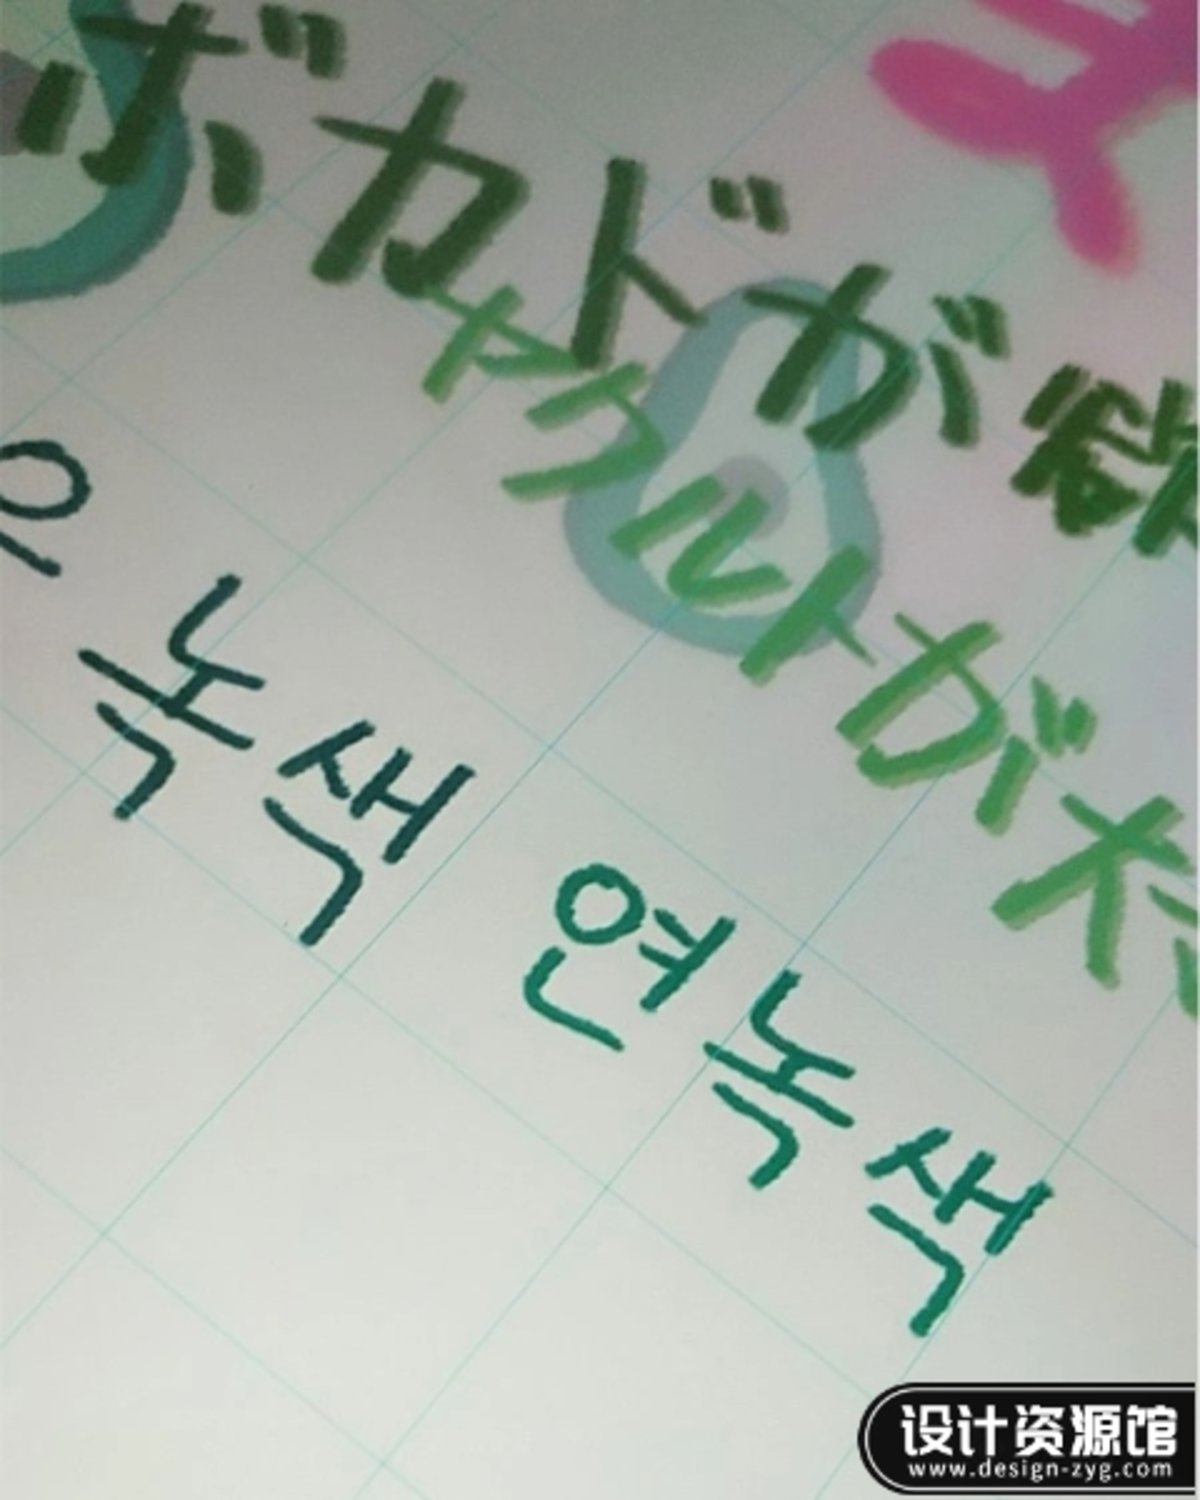 ボカドが
ャクルトが
은 녹색 연녹색
设计资源馆
www.design-zyg.com